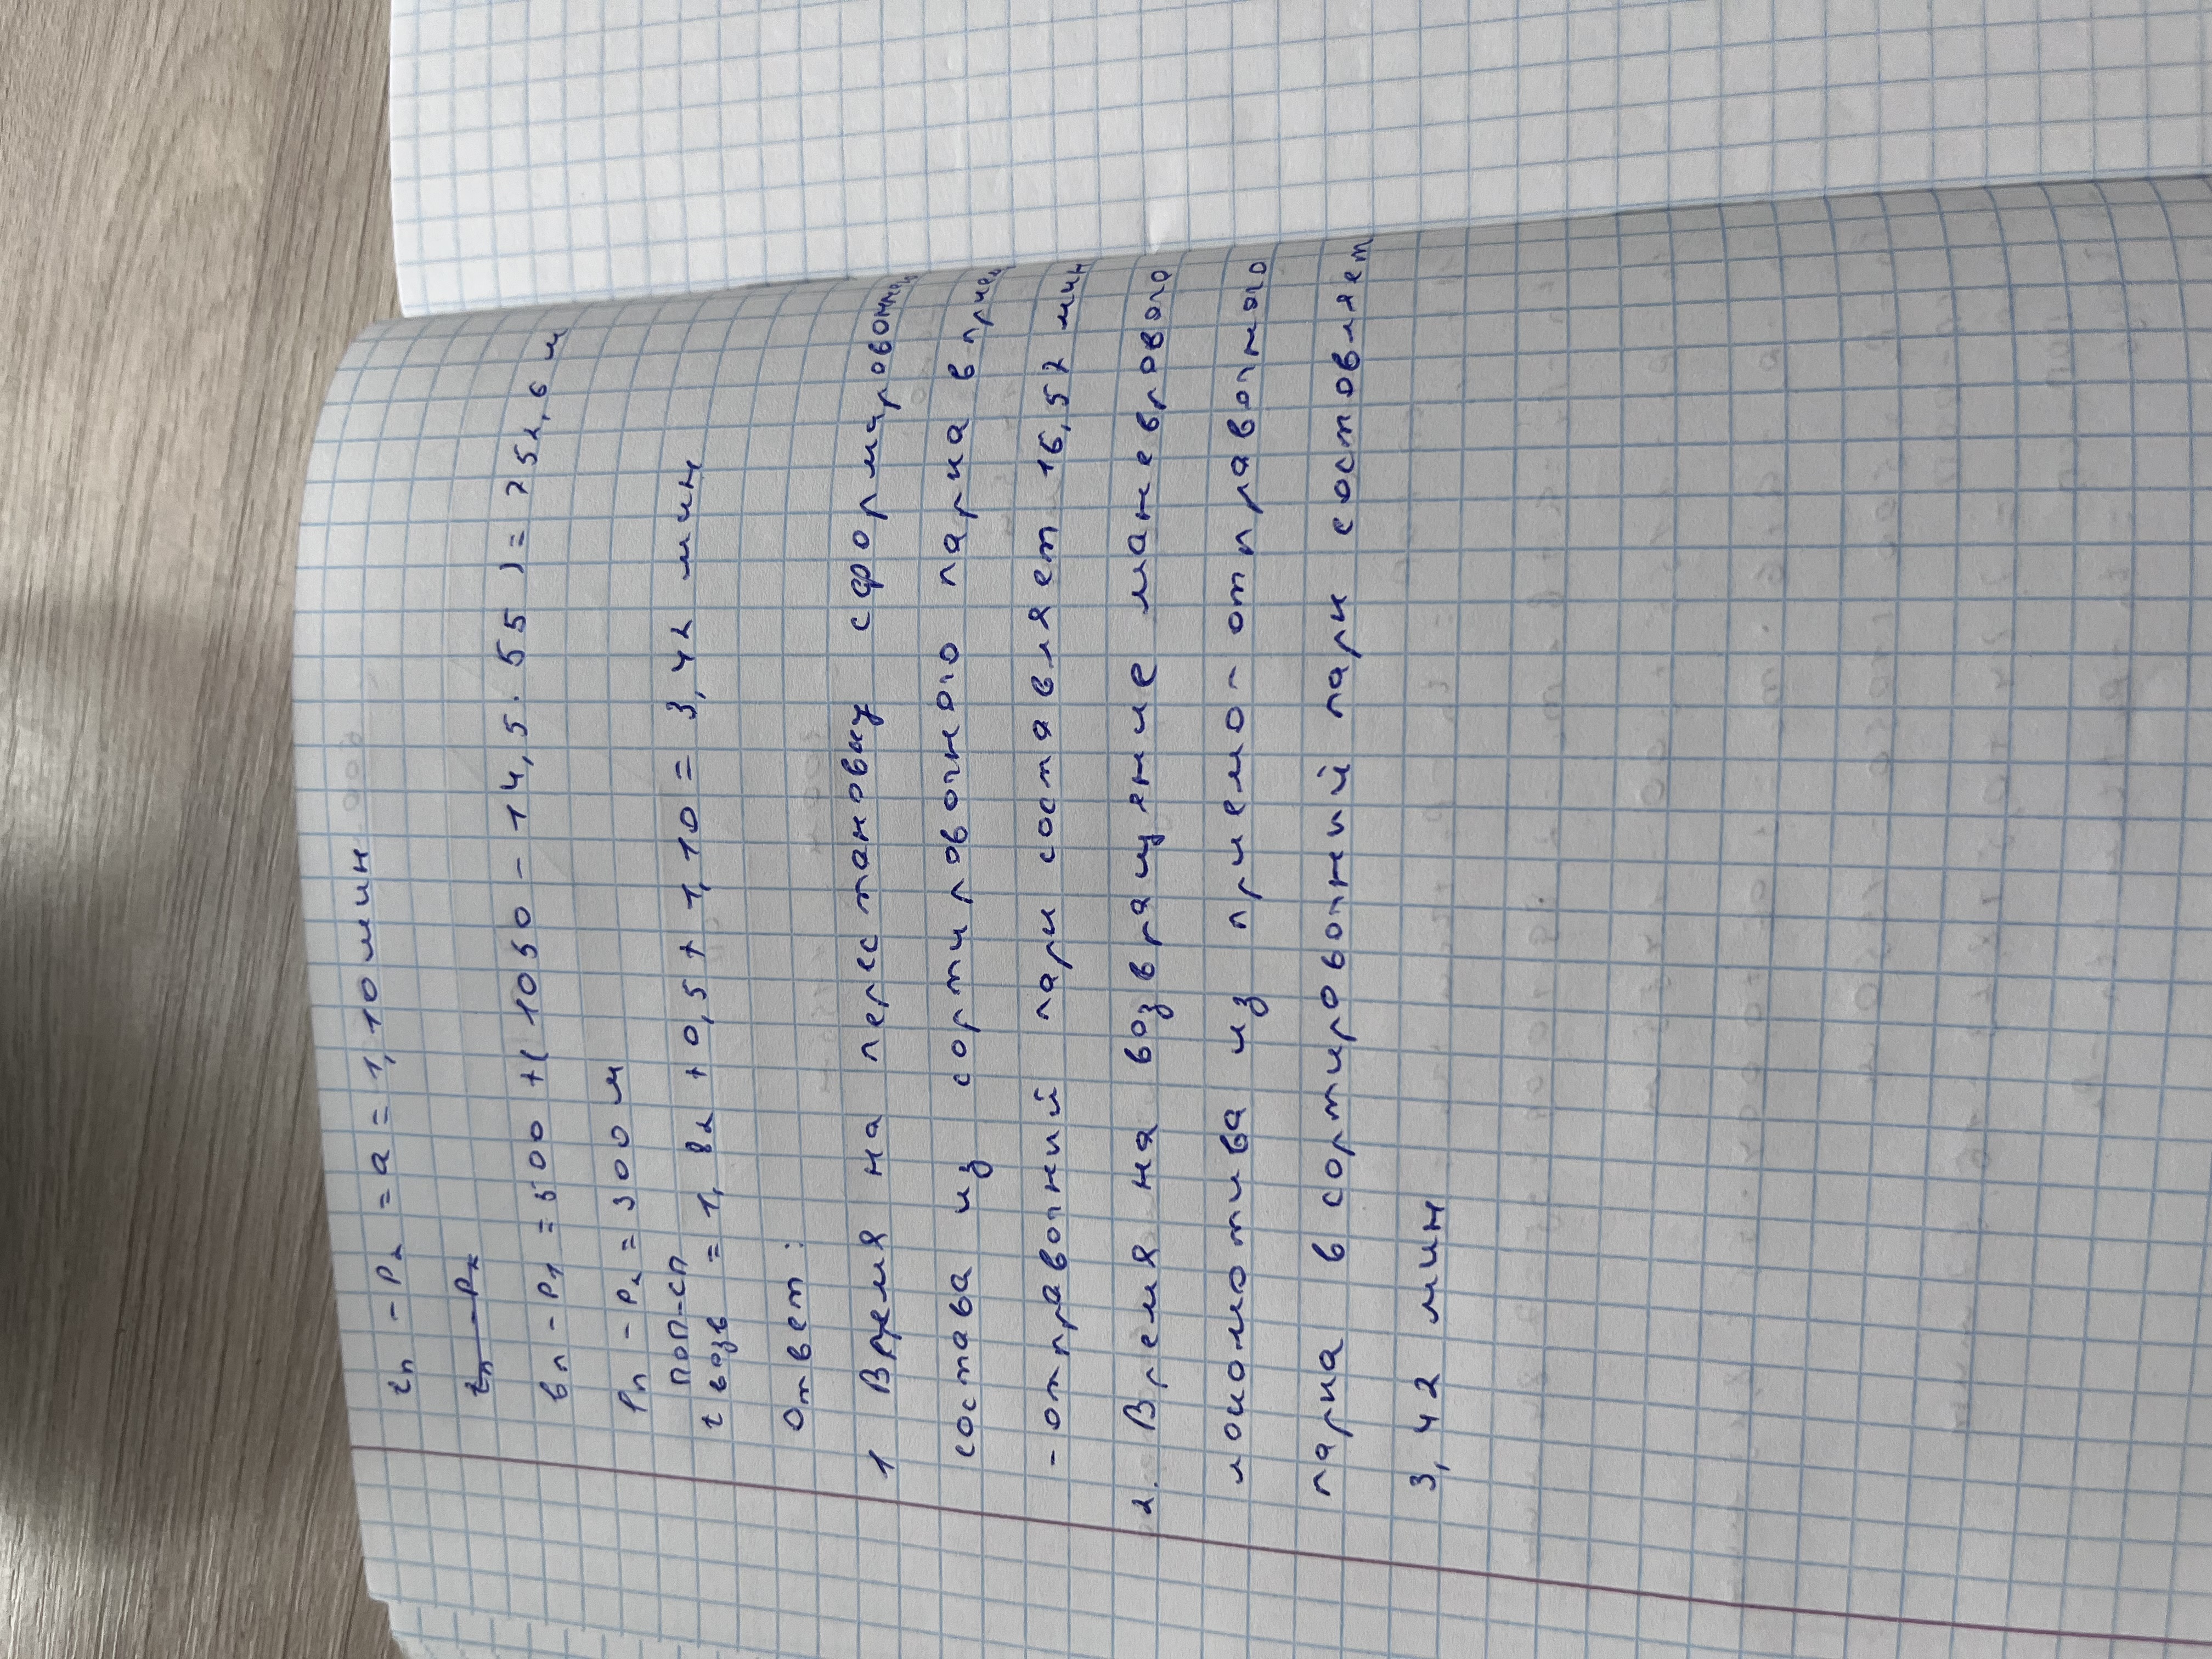 tп - P2 = a = 1,10 мин
tп - P2
вп - P1 = 500 + (1050 - 14,5 · 55) = 752,6 м
Pп - P2 = 300 м
t возв ПОП-СП = 1,82 + 0,5 + 1,10 = 3,42 мин
Ответ:
1 Время на перестановку сформированного
состава из сортировочного парка в прием
- отправочний парк составляет 16,57 мин
2. Время на возвращение маневрового
локомотива из приемо-отправочного
парка в сортировочний парк составляет
3,42 мин